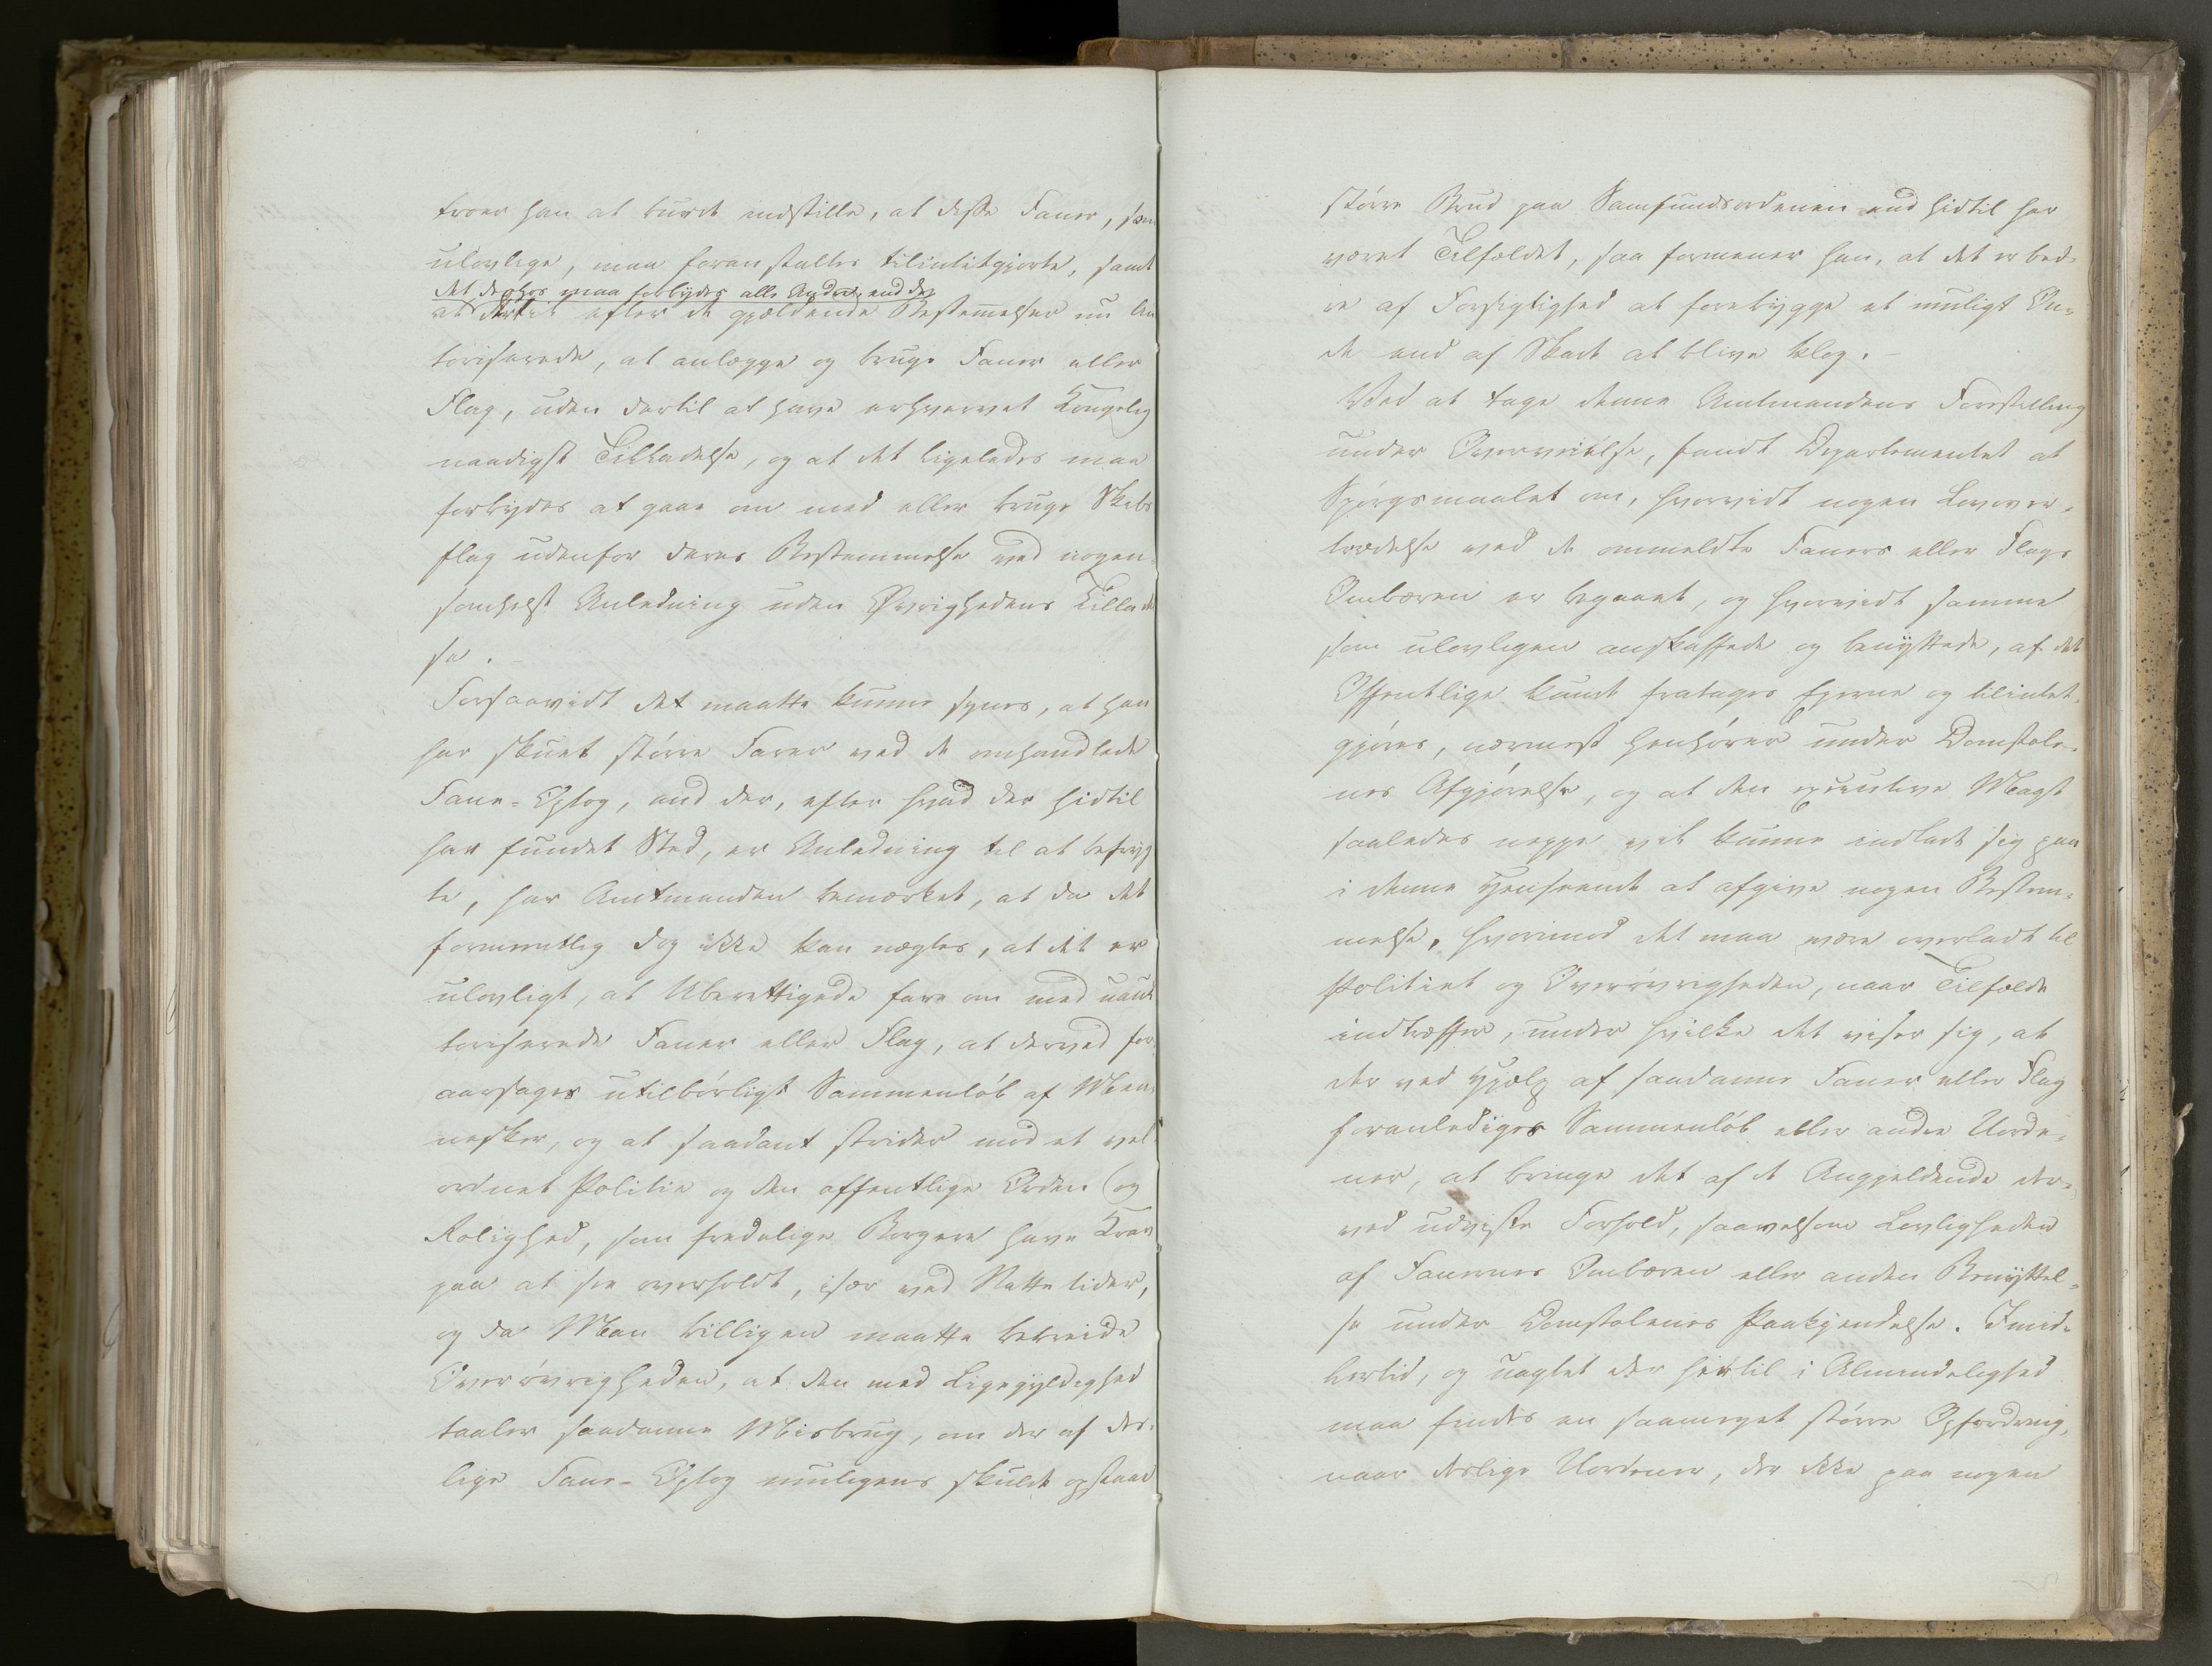 troer han at burde indstille, at disse Faner, som
ulovlige, maa foranstaltes tilintetgjorte, samt
det derhos maa forbydes alle Andre, end de
efter de gjældende Bestemmelser nu Au
toriserede, at anlægge og bruge Faner eller
Flag, uden dertil at have erhvervet Kongelig
naadigst Tilladelse, og at det ligeledes maa
forbydes at gaae om med eller bruge Skibs
flag udenfor deres Bestemmelse ved nogen
somhelst Anledning uden Øvrighedens Tillad
se. –
Forsaavidt det maatte kunne synes, at han
har skuet større Farer ved de omhandlede
Fane-Optog, end der, efter hvad der hidtil
har fundet Sted, er Anledning til at befryg
te, har Amtmanden bemærket, at da det
formentlig dog ikke kan nægtes, at det er
ulovligt, at Uberettigede fare om med uaut
toriserede Faner eller Flag, at derved for
aarsages utilbørligt Sammenløb af Men-
nesker, og at saadant strider mod et vel
ordnet Politie og den offentlige Orden (og
Rolighed, som fredelige Borgere have Krav
paa at see overholdt, især ved Nattetider,
og da Man billigen maatte bebreide
Overøvrigheden, at den med Ligegyldighed
taaler saadanne Misbrug, om der af des-
lige Fane-Optog muligens skulde opstaae
større Brud paa Samfundsordenen end hidtil har
været Tilfældet, saa formener han, at det er bed-
re af Forsigtighed at forebygge et muligt On-
de end af Skade at blive klog. –
Ved at tage denne Amtmandens Forestilling
under Overveielse, fandt Departementet at
Spørgsmaalet om, hvorvidt nogen Lovover-
trædelse ved de ommeldte Faners eller Flags
Ombæren er begaaet, og hvorvidt samme
som ulovligen anskaffede og benyttede, af det
Offentlige kunde fratages Eierne og tilintet-
gjøres, nærmest henhører under Domstole-
nes Afgjørelse, og at den executive Magt
saaledes neppe vil kunne indlade sig paa
i denne Henseende at afgive nogen Bestem-
melse, hvorimod det maa være overladt til
Politiet og Overøvrigheden, naar Tilfælde
indtræffer, under hvilke det viser sig, at
der ved Hjælp af saadanne Faner eller Flag
foranlediges Sammenløb eller andre Uorde-
ner, at bringe det af de Angjeldende der-
ved udviste Forhold, saavelsom Lovligheden
af Fanernes Ombæren eller anden Benyttel-
se under Domstolenes Paakjendelse. Imid-
lertid, og uagtet der hertil i Almindelighed
maa findes en saameget større Opfordring,
naar deslige Uordener, der ikke paa nogen